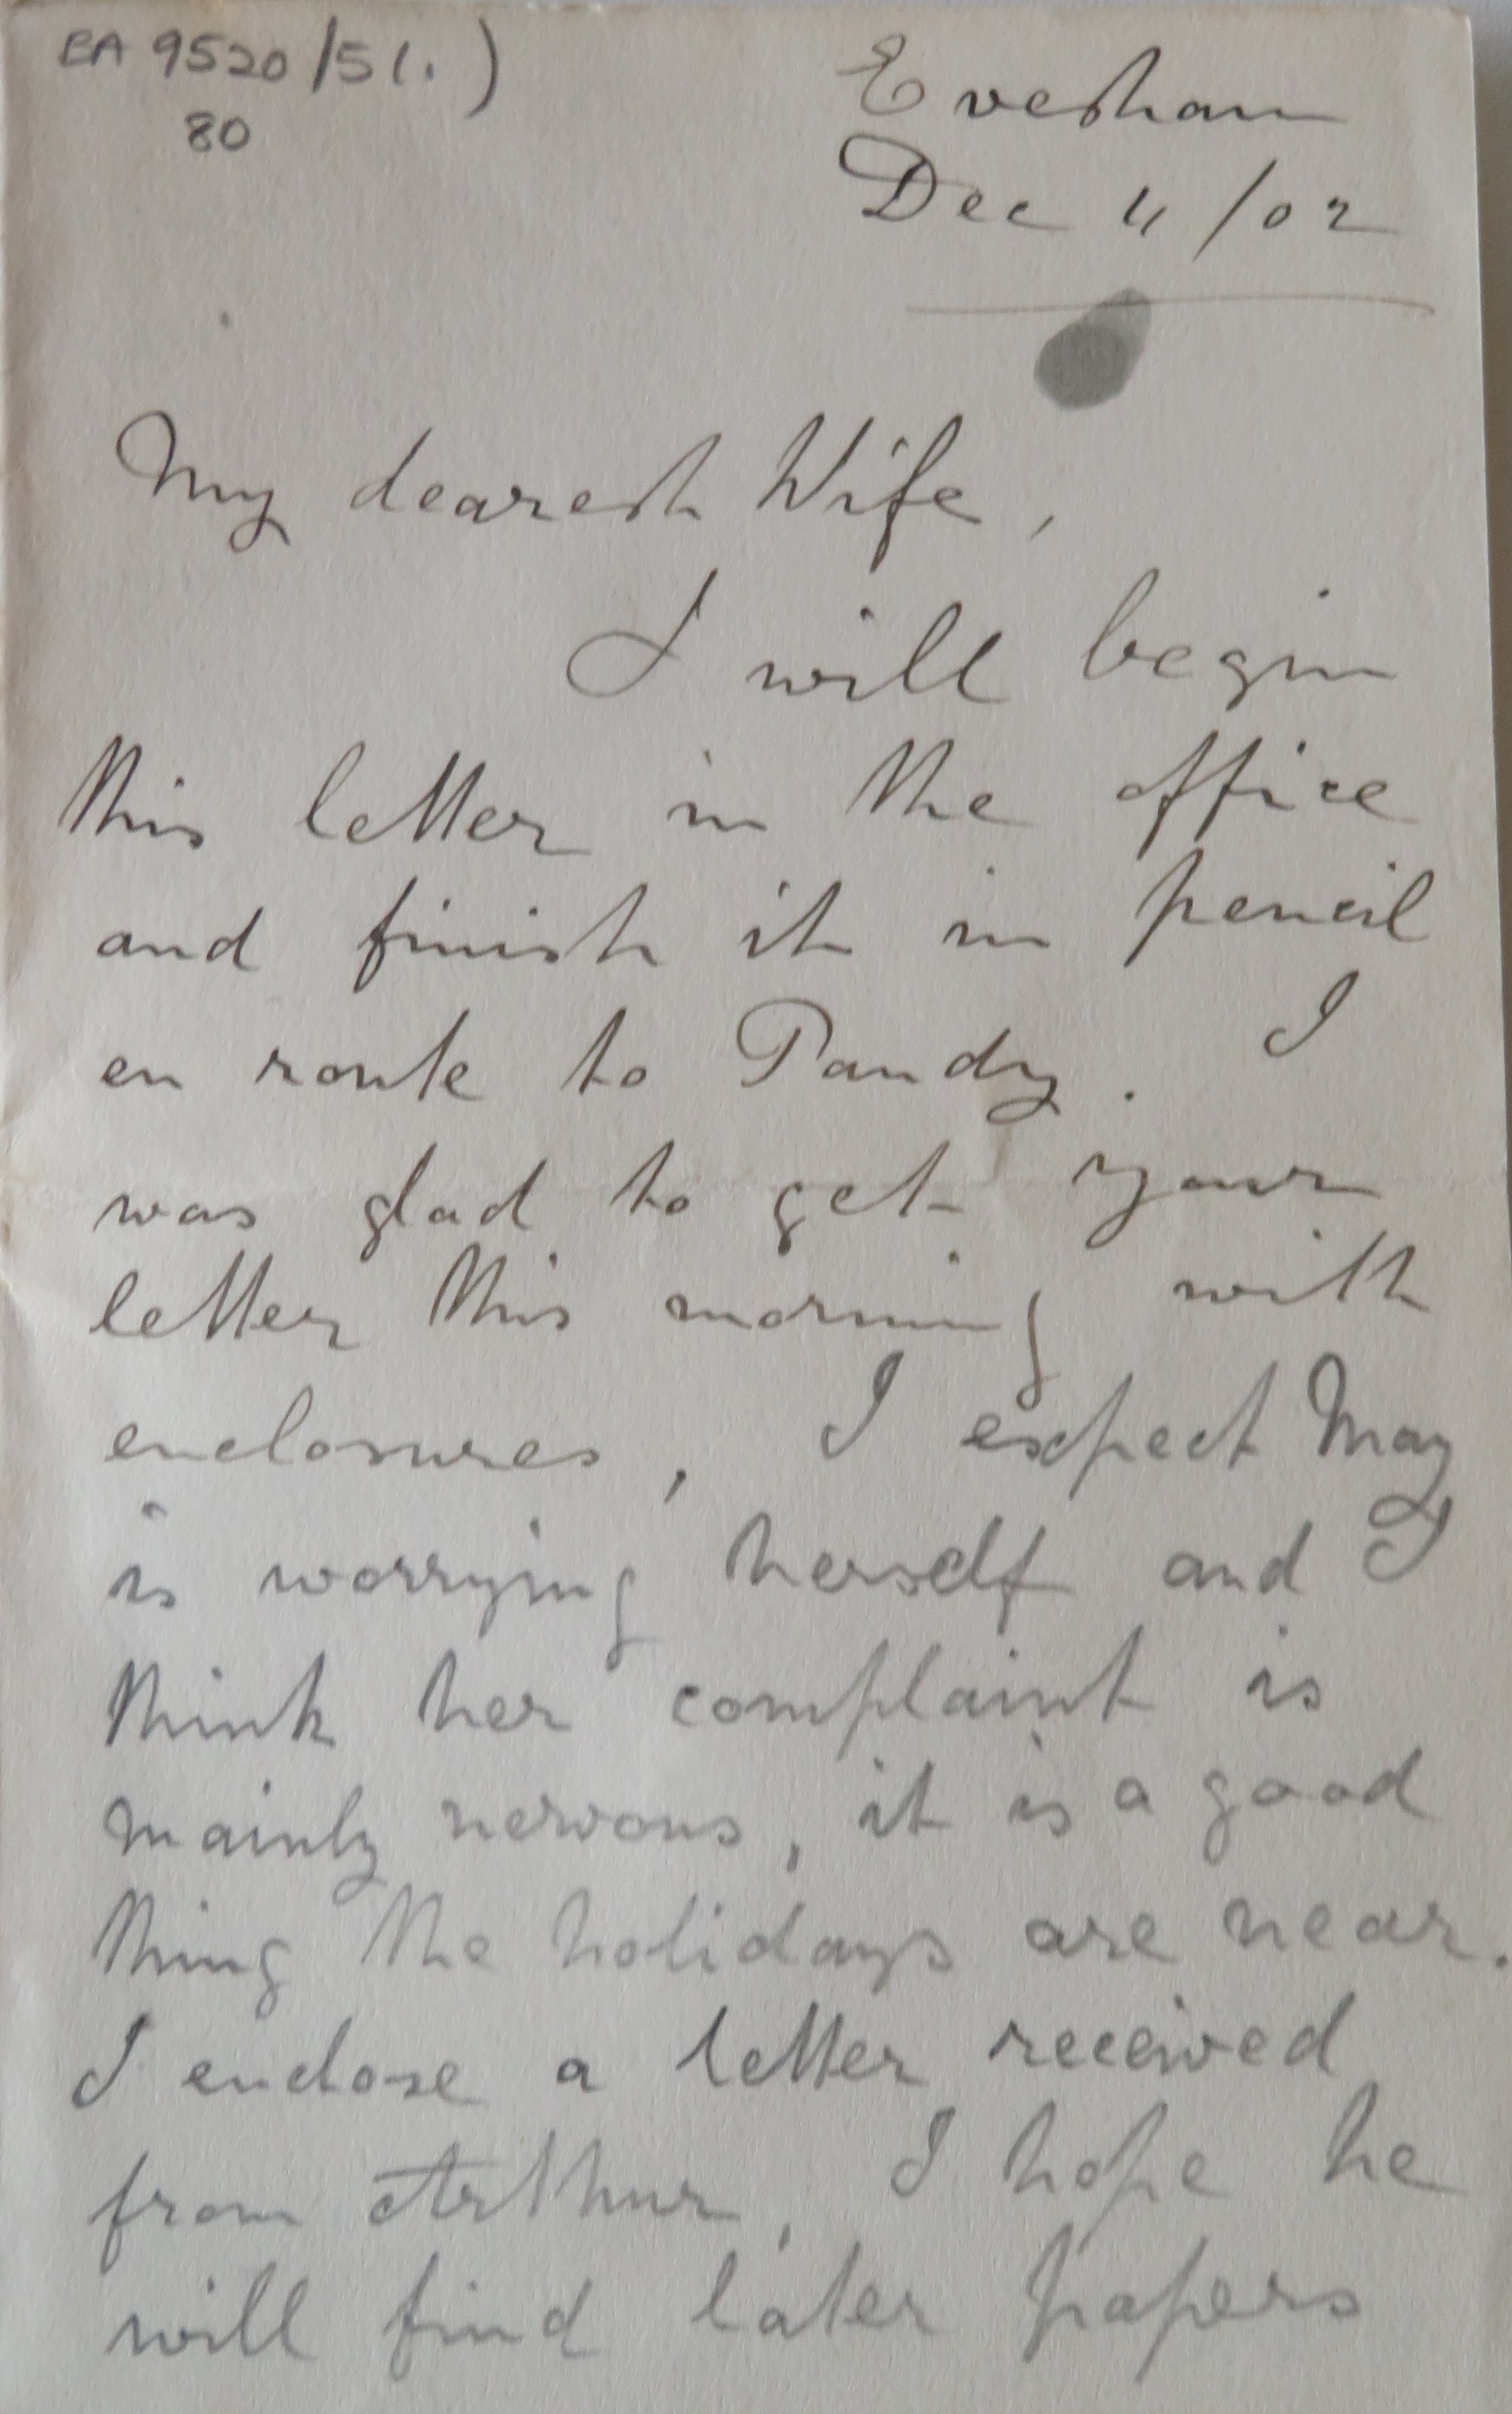 EA 9520/51.)
80
Evesham
Dec 11/02
My dearest Wife,
I will begin
this letter in the office
and finish it in pencil
en route to Pandy. I
was glad to get your
letter this morning with
enclosures, I expect May
is worrying herself and I
think her complaint is
mainly nervous, it is a good
thing the holidays are near.
I enclose a letter received
from Arthur, I hope he
will find later papers